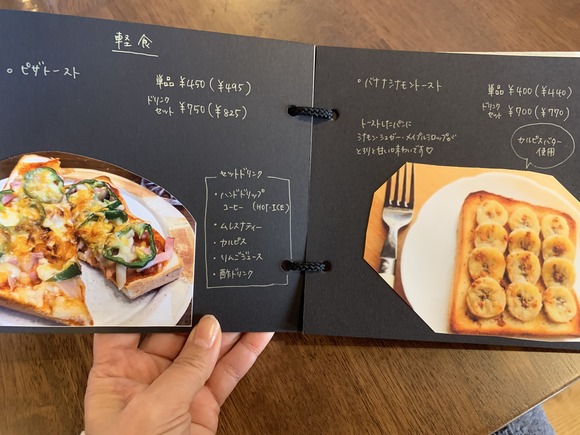 軽食
○ ピザトースト
単品 ¥450(¥495)
ドリンクセット ¥750(¥825)
セットドリンク
・ハンドドリップ
コーヒー (HOT・ICE)
・ムレスナティー
・カルピス
・りんごジュース
・酢ドリンク
○ バナナシナモントースト
単品 ¥400(¥440)
ドリンクセット ¥700(¥770)
トーストしたパンに
シナモン・シュガー・メイプルシロップが
とろりと甘い味わいです♡
カルピスバター
使用